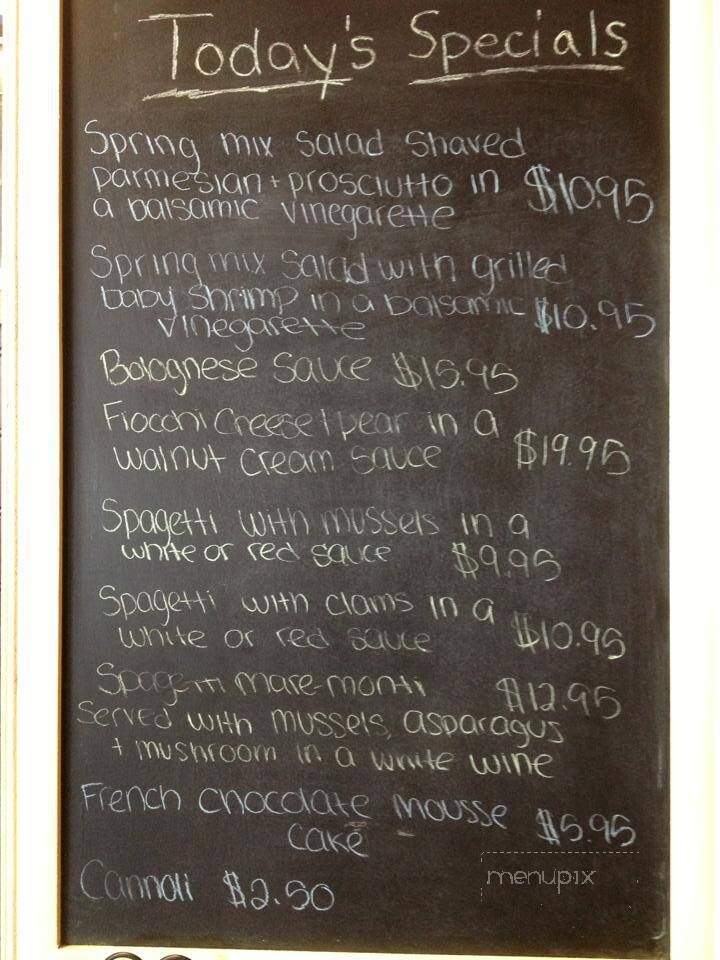 Today's Specials
Spring mix Salad Shaved
parmesian + prosciutto in $10.95
a balsamic vinegarette
Spring mix Salad with grilled
baby shrimp in a balsamic $10.95
vinegarette
Bolognese Sauce $15.95
Fiocchi Cheese + pear in a
walnut cream sauce $19.95
Spagetti with mussels in a
white or red sauce $9.95
Spagetti with clams in a
white or red sauce $10.95
Spagetti mare-monti $12.95
Served with mussels, asparagus
+ mushroom in a white wine
French chocolate mousse $5.95
cake
Cannoli $2.50
menupix